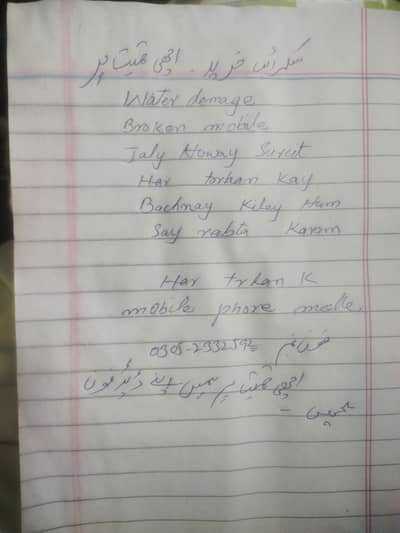 سکرائس خرید. اچھی قیمت پر
Water damage
Broken mobile
Jaly Howay Surcit
Har trhan Kay
Bachnay Kiley Ham
Say rabta Karam
Har trhan K
mobile phore melle.
فون نمبر 0305-2332592
اچھی قیمت پر ہمیں اپنے فون
بیچیں -